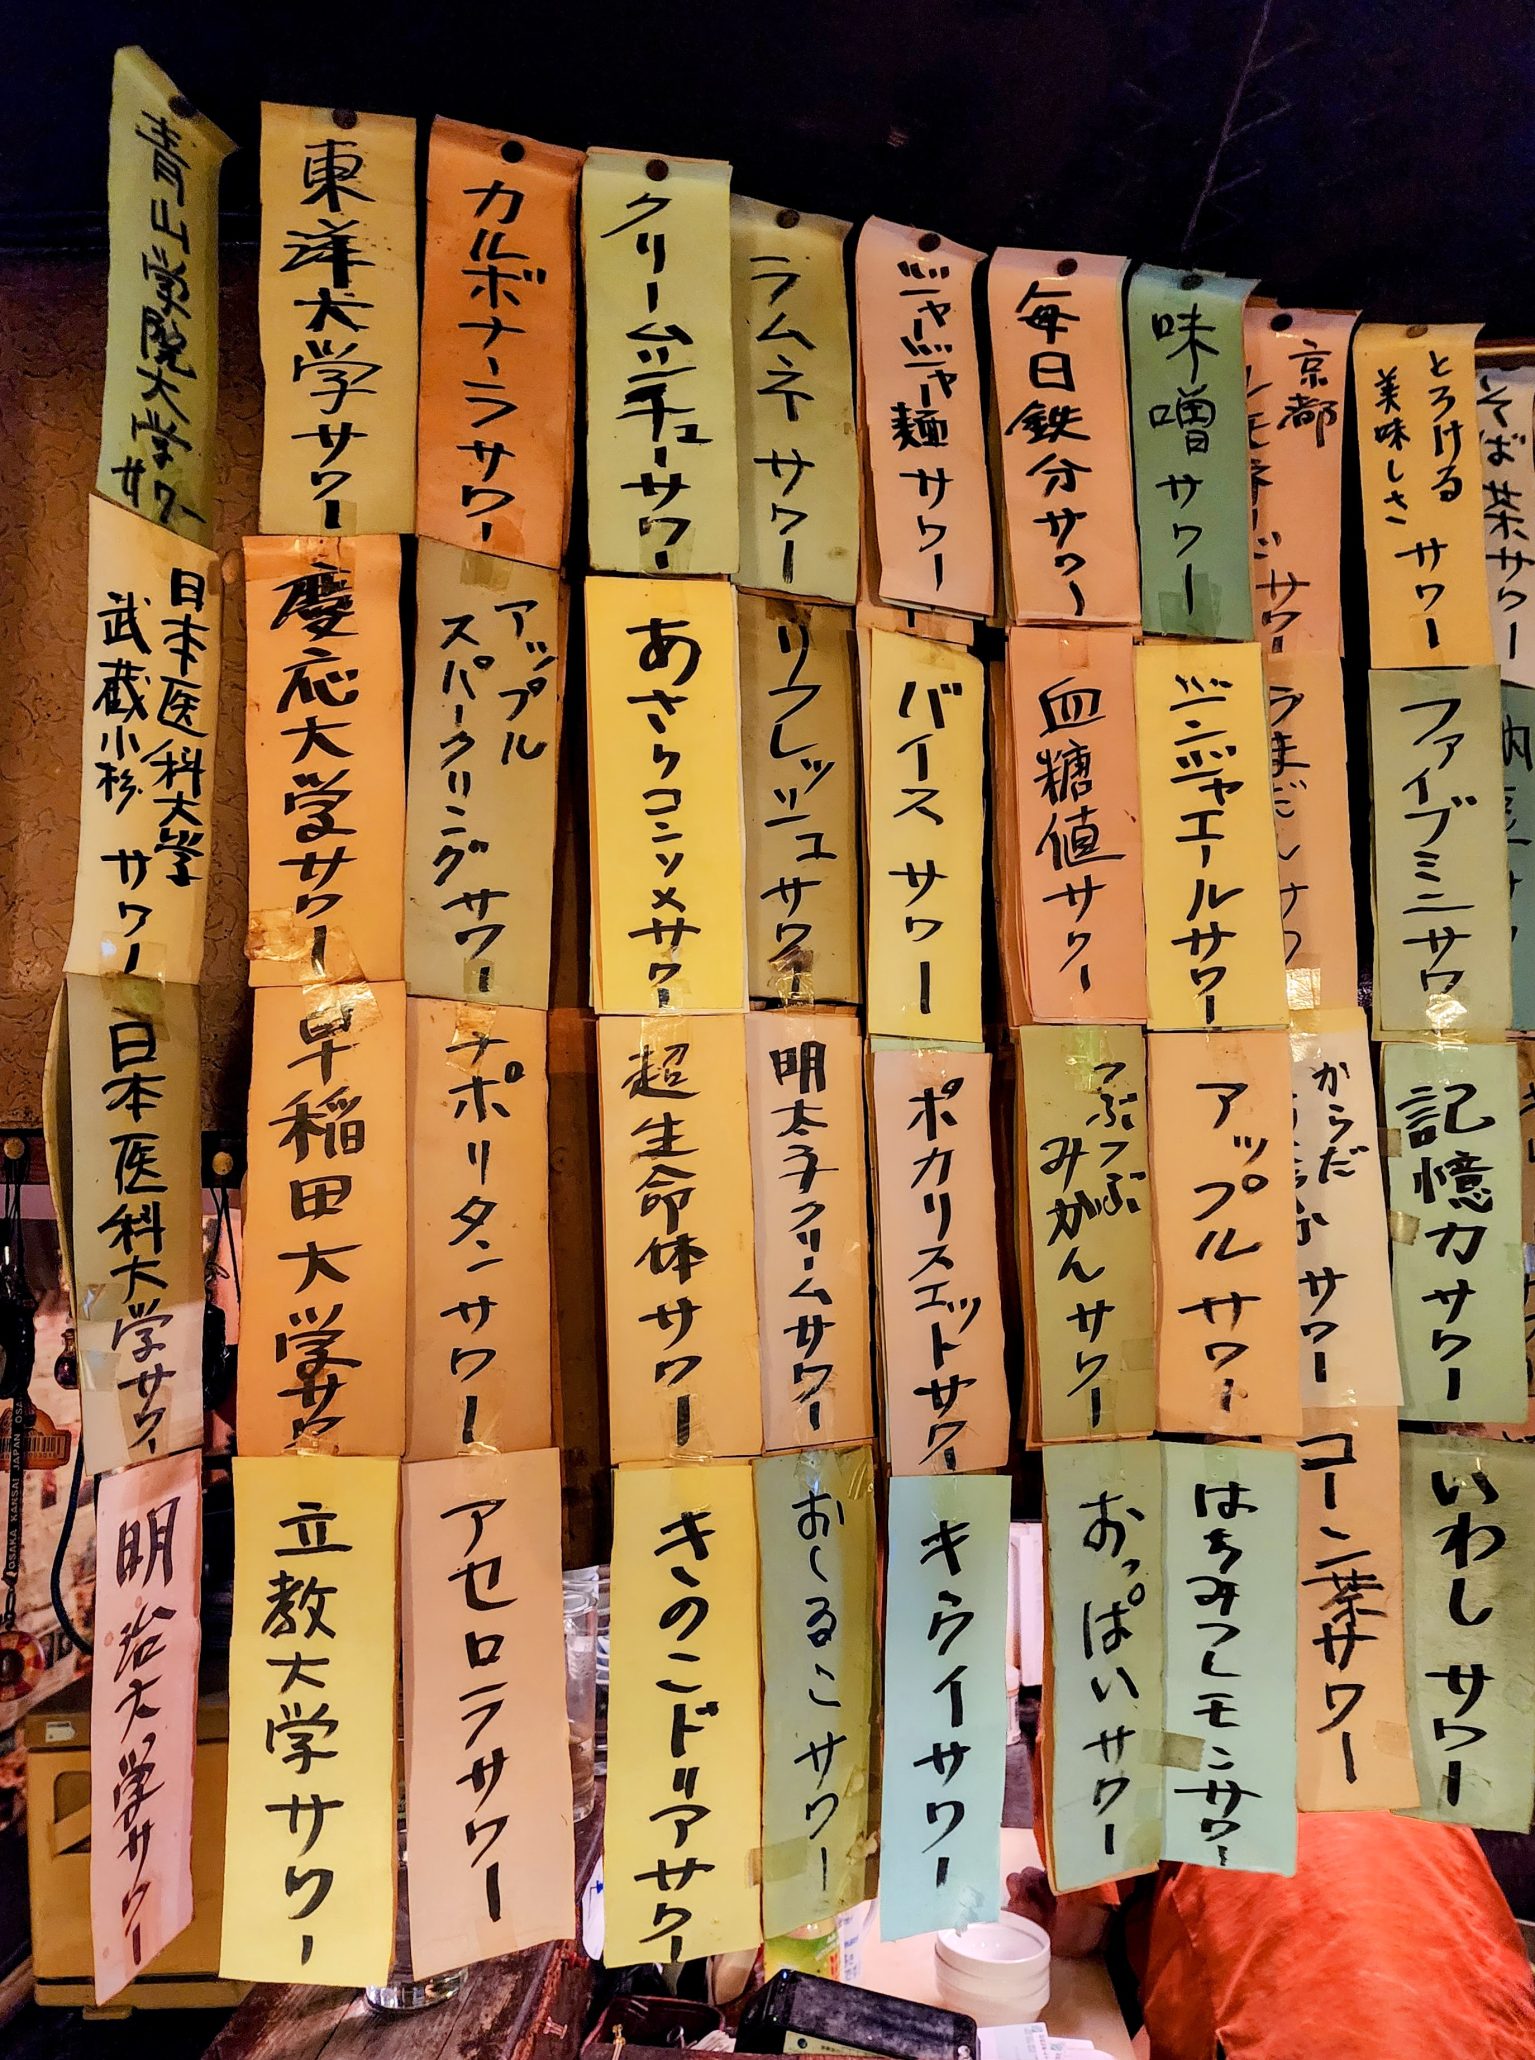 青山学院大学サワー
日本医科大学
武蔵小杉 サワー
日本医科大学サワー
明治大学サワー
東洋大学サワー
慶応大学サワー
早稲田大学サワー
立教大学サワー
カルボナーラサワー
アップル
スパークリングサワー
ナポリタンサワー
アセロラサワー
クリームシチューサワー
あさりコンソメサワー
超生命体サワー
きのこドリアサワー
ラムネサワー
リフレッシュサワー
明太子クリームサワー
おしるこサワー
ジャージャー麺サワー
バイスサワー
ポカリスエットサワー
キウイサワー
毎日鉄分サワー
血糖値サワー
つぶつぶ
みかんサワー
おっぱいサワー
味噌サワー
ジンジャエールサワー
アップルサワー
はちみつレモンサワー
京都
サワー
からだ
サワー
コーン葉サワー
とろける
美味しさ サワー
ファイブミニサワ
記憶力サワー
いわしサワー
そば茶サワー
OSAKA KANSAI JAPAN